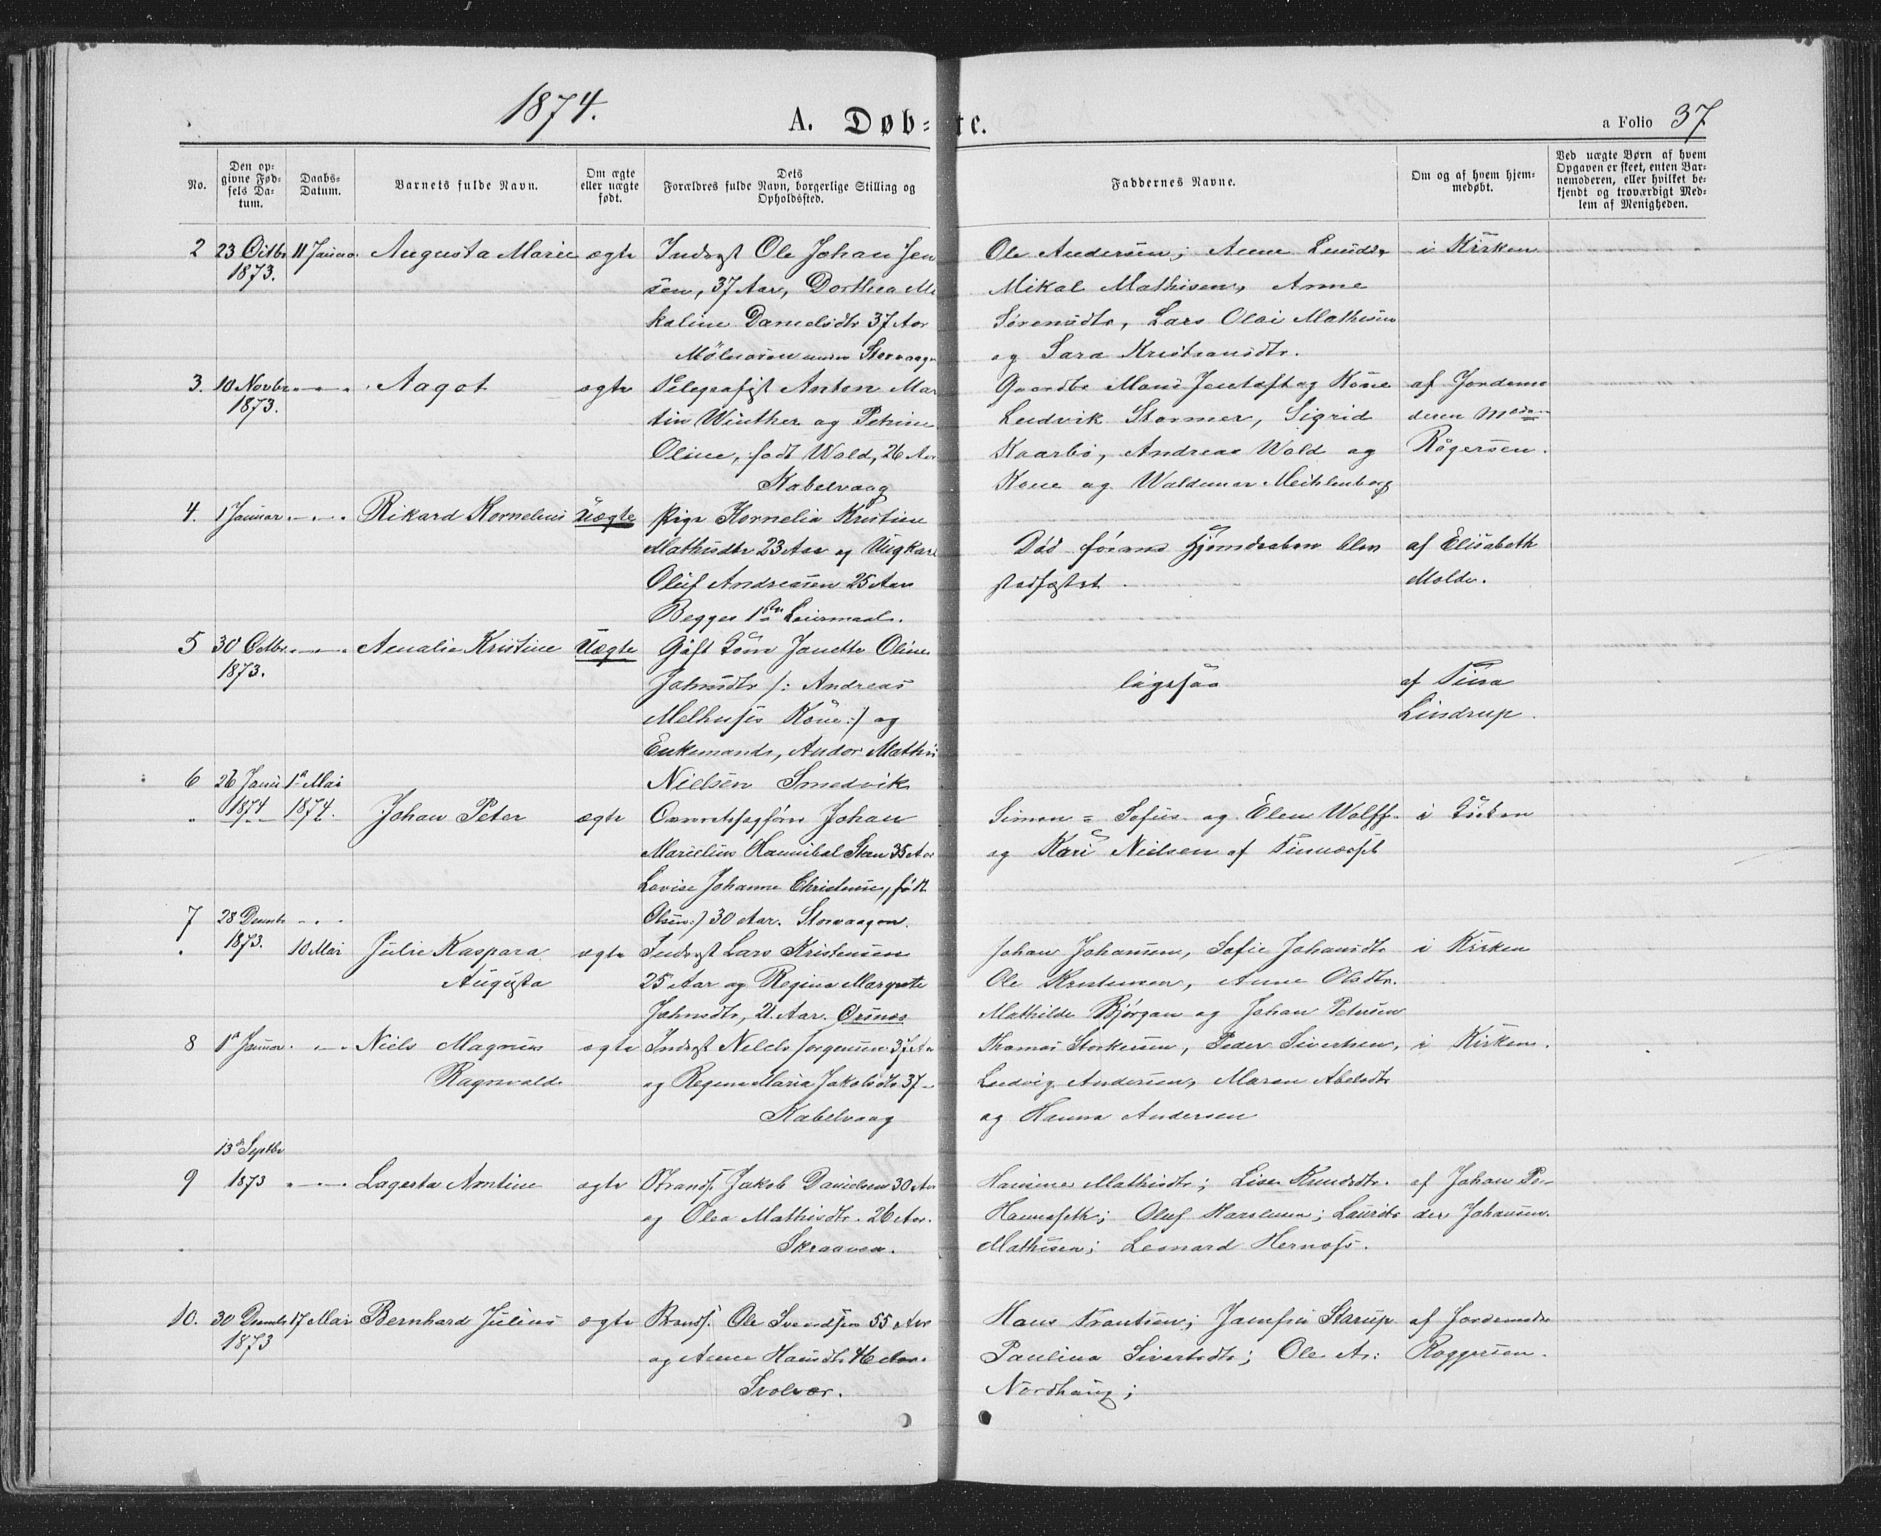 1874.
A. Døb=te.
a Folio 37
No.
Den op-
givne Fød-
sels Da-
tum.
Daabs-
Datum.
Barnets fulde Navn.
Om ægte
eller uægte
født.
Dets
Forældres fulde Navn, borgerlige Stilling og
Opholdssted.
Faddernes Navne.
Om og af hvem hjem-
medøbt.
Ved uægte Børn af hvem
Opgaven er skeet, enten Bar-
nemoderen, eller hvilket be-
kjendt og troværdigt Med-
lem af Menigheden.
2 23 Octbr 11 Januar Augusta Marie ægte Inds Ole Johan Jen
1873.
sen, 37 Aar, Dorthea Mi
kaline Danielsdtr 37 Aar
Mølnosen under Storvaagen
Ole Andersen; Anne
Mikal Mathisen, Anne
Sørensdtr, Lars Olai Mathisen
og Sara Kristiansdtr.
i Kirken
3. 10 Novbr — — Aagot ægte Telegrafist Anton Mar
1873.
tin Winther og Petrine
Oline, født Wold, 26 Aar
Kabelvaag
Gaardbr Mons og Kone
Ludvik Stormer, Sigrid
Kaarbø, Andreas Wold og
Kone og Waldemar Meihlenborg
af Jordemo
deren Mad
Rögersen.
4. 1 Januar — — Rikard Kornelius Uægte Pige Kornelia Kristine
Mathisdtr 23 Aar og Ungkarl
Oluf Andreasen 25 Aar
Begges 1ste Leiermaal.
Død førend Hjemdaaben blev
stadfæstet.
af Elisabeth
Molde.
5 30 Octbr — — Amalie Kristine Uægte Gift Janette Oline
1873.
Johnsdtr /: Andreas
Melhuses Kone :/ og
Enkemand, Andor Mathis
Nielsen Smedvik
ligesaa
af Tina
Lindrup.
6 26 Januar 1ste Mai
1874 1874. Johan Peter ægte Johan
Marelius Hannibal Stan 35 Aar
Lovise Johanne Christense, født
Olsen :/ 30 Aar. Storvaagen.
Simon = Sofus og Elen Wolff
og Kari Nielsen af
i Kirken
7 28 Decmbr - - -
1873. 10 Mai Julie Kaspara ægte Inds Lars Kristensen
Augusta
25 Aar og Regina Margrete
Johnsdtr, 21 Aar. Orsnes
Johan Johansen, Sofie Johansdtr
Ole Kristensen, Anne Olsdtr.
Mathilde Bjørgan og Johan Petersen
i Kirken
8 1ste Januar — — Niels Magnus ægte Inds Nels Jørgensen 37 Aar
Ragnvald.
og Regine Maria Jakobsdtr 37 —
Kabelvaag
Thomas Storkersen, Peder Sivertsen,
Ludvig Andersen, Maren Abelsdtr
og Hanna Andersen
i Kirken.
13de Septbr
9 1873 — — Lagerta Amtine ægte Strands. Jakob Danielsen 30 Aar
og Olea Mathisdtr. 26 Aar.
Skraaven.
Hansine Mathisdtr; Lisa Knudsdtr.
Oluf Laurits
Mathisen; Leonard
af Johan Pe-
der Johansen.
10. 30 Decmbr 17 Mai Bernhard Julius ægte Strands. Ole Svendsen 55 Aar
1873
og Anne Hansdtr 46 Aar.
Svolvær.
Hans Frantsen; Starup
Paulina Sivertsdtr; Ole Ar:
Nordhaug;
af Jordemodr
Roggersen.